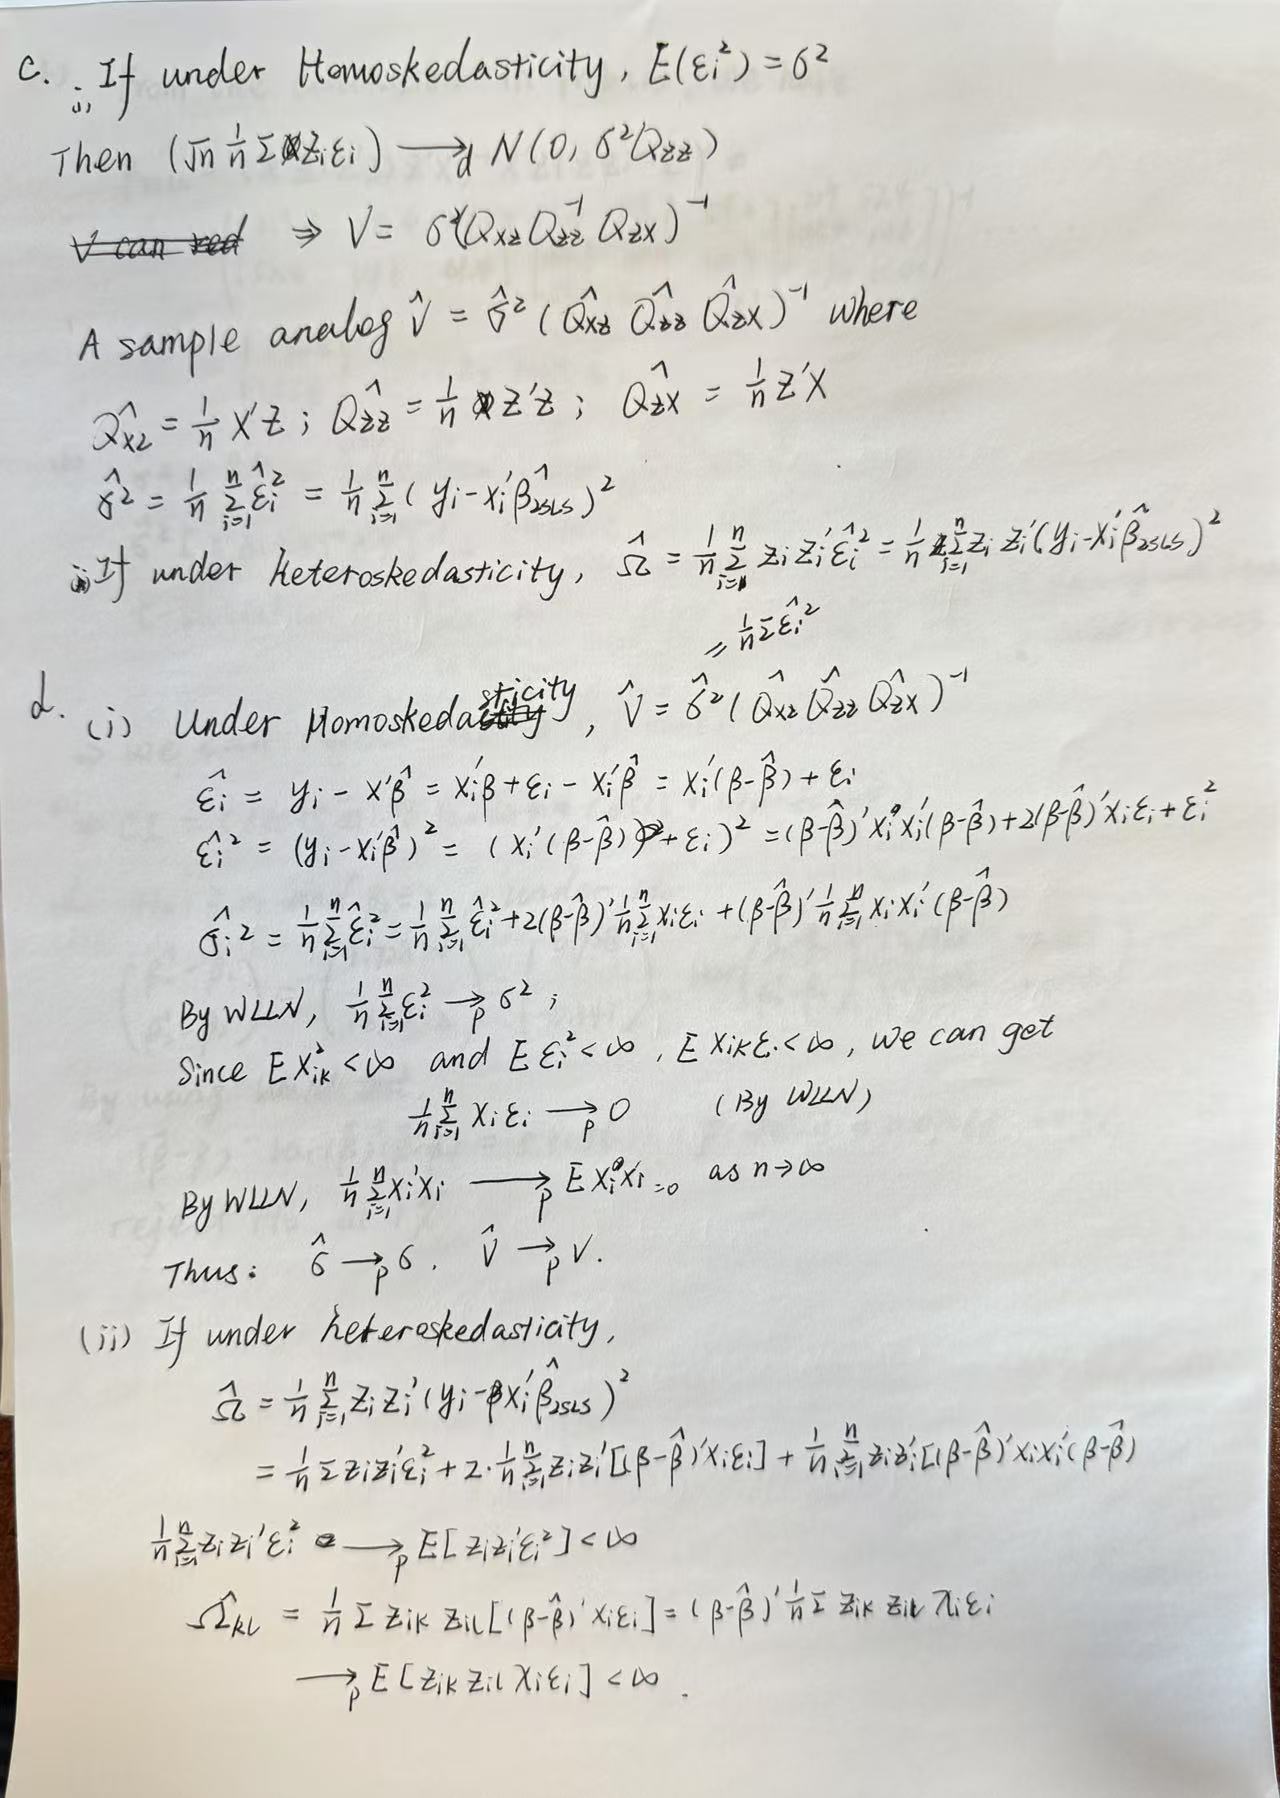 c. (i) If under Homoskedasticity, E(εi²) = σ²
Then (√n 1/n Σ ziεi) →d N(0, σ²Qzz)
V can ⇒ V = σ²(Qxz Qzz⁻¹ Qzx)⁻¹
A sample analog V̂ = σ̂² (Q̂xz Q̂zz Q̂zx)⁻¹ where
Q̂xz = 1/n X'Z ; Q̂zz = 1/n Z'Z ; Q̂zx = 1/n Z'X
σ̂² = 1/n Σᵢ₌₁ⁿ ε̂i² = 1/n Σᵢ₌₁ⁿ (yi - xi'β̂2SLS)²
(ii) If under heteroskedasticity, Ω̂ = 1/n Σᵢ₌₁ⁿ zi zi' ε̂i² = 1/n Σᵢ₌₁ⁿ zi zi'(yi - xi'β̂2SLS)²
= 1/n Σ ε̂i²
d. (i) Under Homoskedasticity, V̂ = σ̂² (Q̂xz Q̂zz Q̂zx)⁻¹
ε̂i = yi - x'β̂ = xi'β + εi - xi'β̂ = xi'(β-β̂) + εi
ε̂i² = (yi - xi'β̂)² = (xi'(β-β̂) + εi)² = (β-β̂)'xi xi'(β-β̂) + 2(β-β̂)'xiεi + εi²
σ̂i² = 1/n Σᵢ₌₁ⁿ ε̂i² = 1/n Σᵢ₌₁ⁿ ε̂i² + 2(β-β̂)' 1/n Σᵢ₌₁ⁿ xiεi + (β-β̂)' 1/n Σᵢ₌₁ⁿ xi xi'(β-β̂)
By WLLN, 1/n Σᵢ₌₁ⁿ εi² →p σ² ;
Since E Xik² < ∞ and E εi² < ∞, E Xikεi < ∞, we can get
1/n Σᵢ₌₁ⁿ xiεi →p 0 (By WLLN)
By WLLN, 1/n Σᵢ₌₁ⁿ xi'xi →p E xi xi' = 0 as n→∞
Thus: σ̂ →p σ. V̂ →p V.
(ii) If under heteroskedasticity,
Ω̂ = 1/n Σᵢ₌₁ⁿ zi zi'(yi - xi'β̂2SLS)²
= 1/n Σ zizi'εi² + 2·1/n Σᵢ₌₁ⁿ zizi'[(β-β̂)'xiεi] + 1/n Σᵢ₌₁ⁿ zizi'[(β-β̂)'xixi'(β-β̂)
1/n Σᵢ₌₁ⁿ zizi'εi² →p E[zizi'εi²] < ∞
Ω̂kl = 1/n Σ zik zil[(β-β̂)'xiεi] = (β-β̂)' 1/n Σ zik zil xiεi
→p E[zik zil xiεi] < ∞.